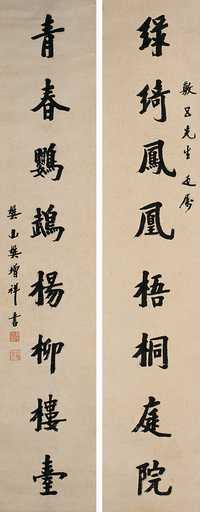 綠綺鳳凰梧桐庭院
先生
青春鸚鵡楊柳樓臺
樊山樊增祥書